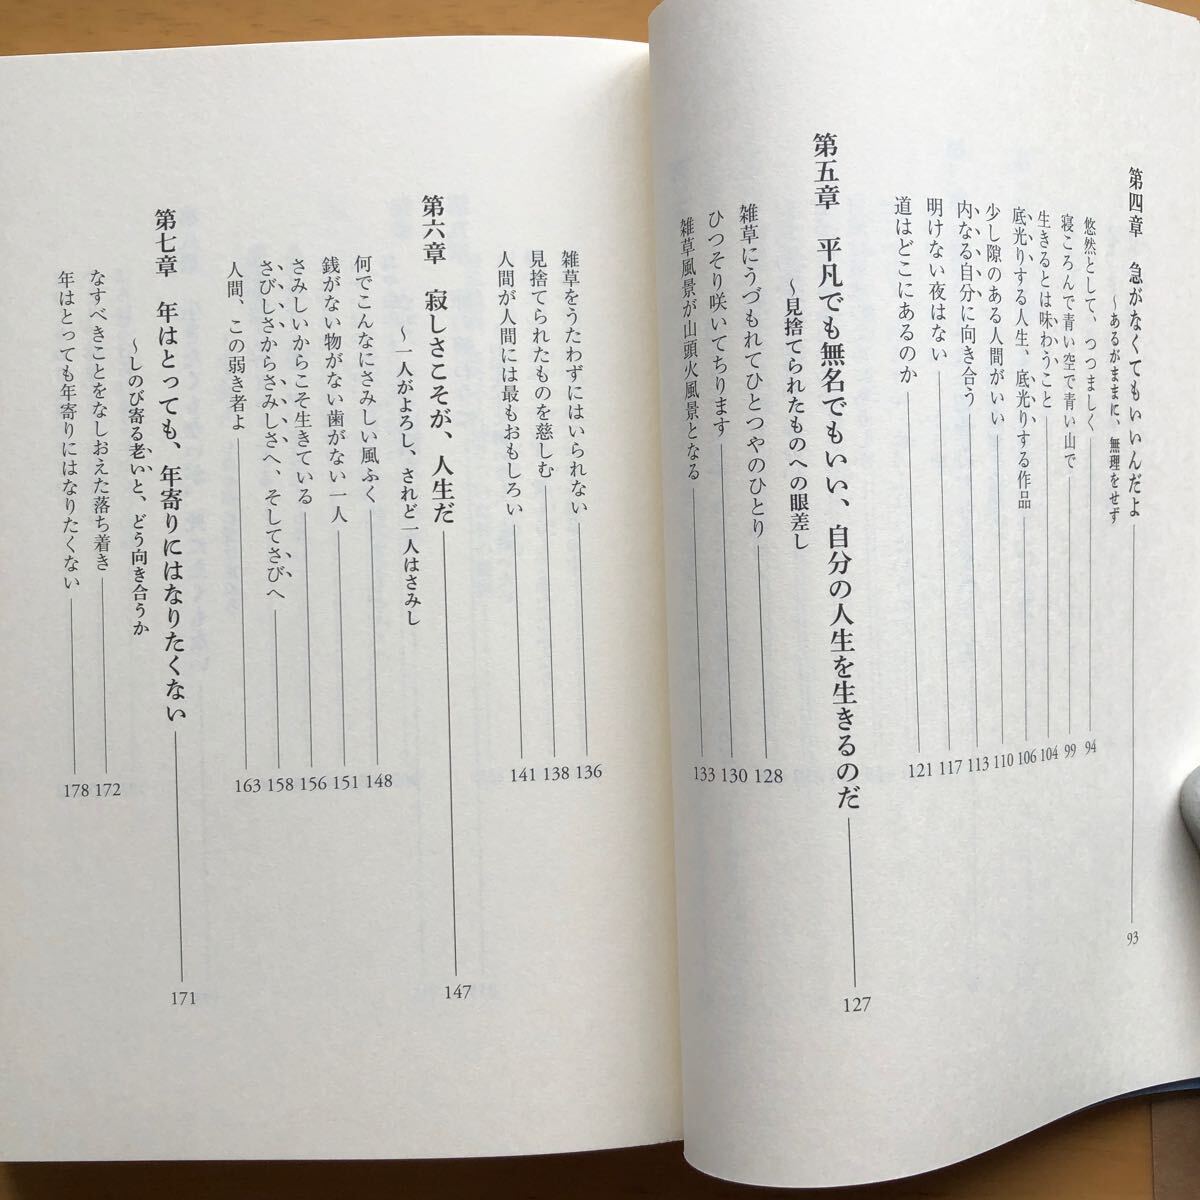 第四章　急がなくてもいいんだよ 93
～あるがままに、無理をせず
悠然として、つつましく 94
寝ころんで青い空で青い山で 99
生きるとは味わうこと 104
底光りする人生、底光りする作品 106
少し隙のある人間がいい 110
内なる自分に向き合う 113
明けない夜はない 117
道はどこにあるのか 121
第五章　平凡でも無名でもいい、自分の人生を生きるのだ 127
～見捨てられたものへの眼差し
雑草にうづもれてひとつやのひとり 128
ひつそり咲いてちります 130
雑草風景が山頭火風景となる 133
雑草をうたわずにはいられない 136
見捨てられたものを慈しむ 138
人間が人間には最もおもしろい 141
第六章　寂しさこそが、人生だ 147
～一人がよろし、されど一人はさみし
何でこんなにさみしい風ふく 148
銭がない物がない歯がない一人 151
さみしいからこそ生きている 156
さびしさからさみしさへ、そしてさびへ 158
人間、この弱き者よ 163
第七章　年はとっても、年寄りにはなりたくない 171
～しのび寄る老いと、どう向き合うか
なすべきことをなしおえた落ち着き 172
年はとっても年寄りにはなりたくない 178